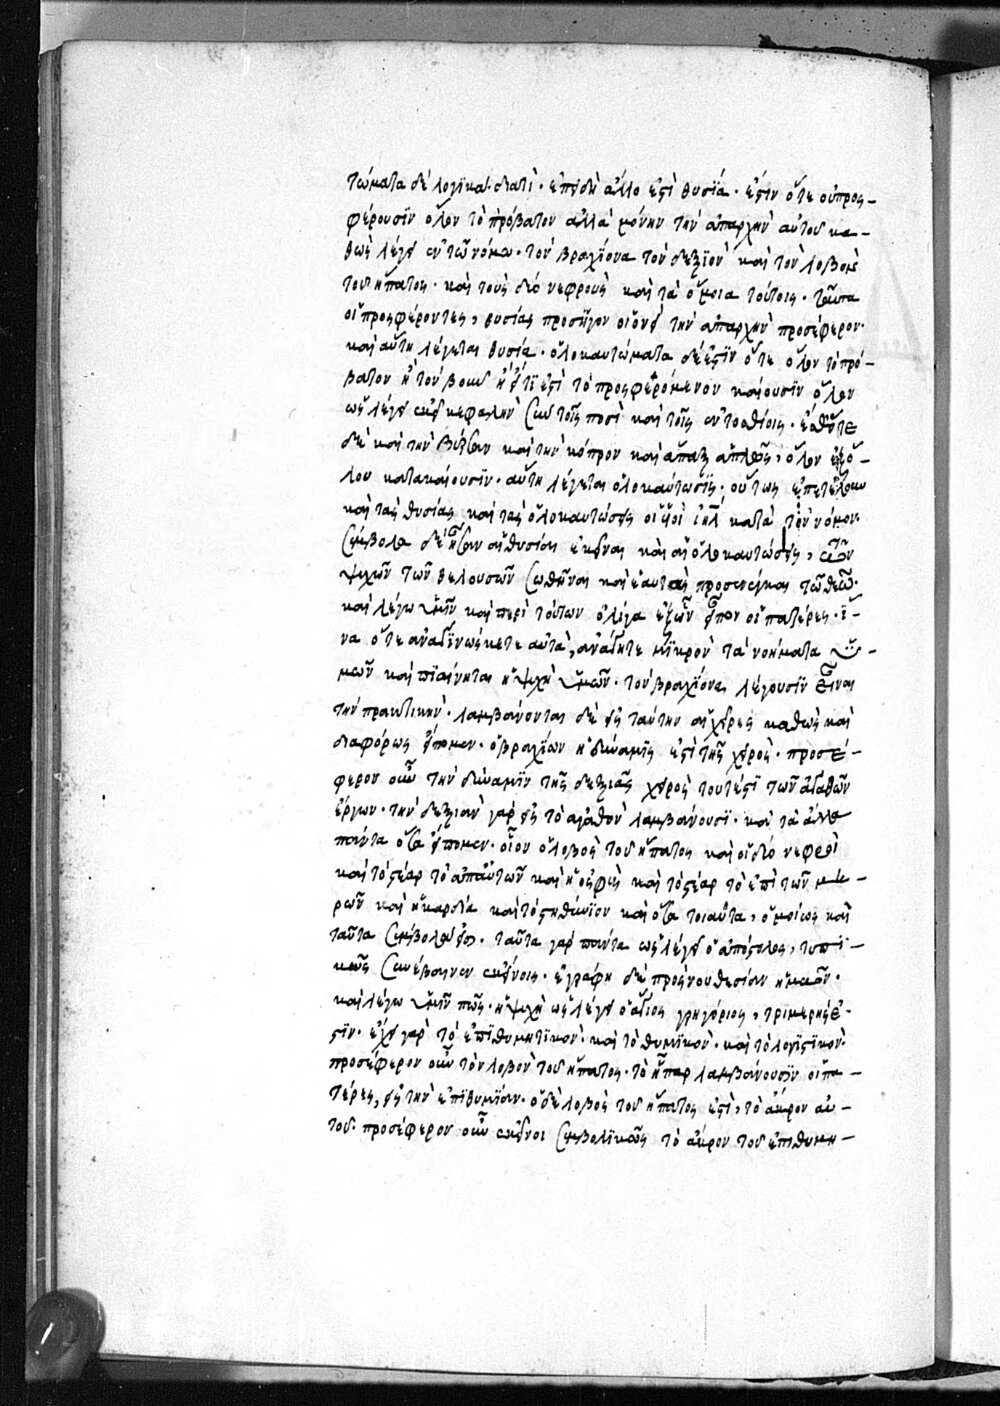 τώματα δὲ λογικά· διατί· ἐπειδὴ ἄλλο ἐστὶ θυσία· ἔστιν ὅτε οὐ προσ-
φέρουσϊν ὅλον τὸ πρόβατον ἀλλὰ μόνην τὴν ἀπαρχὴν αὐτοῦ κα-
θὼς λέγει ἐν τῶ νόμω· τὸν βραχίονα τὸν δεξϊὸν καὶ τὸν λοβὸν
τοῦ ἥπατος· καὶ τοὺς δύο νεφροὺς καὶ τὰ ὅμοια τούτοις· ταῦτα
οἱ προσφέροντες, θυσίας προσῆγον οἱονεὶ τὴν ἀπαρχὴν προσέφερον·
καὶ αὕτη λέγεται θυσία· ὁλοκαυτώματα δὲ ἐστϊν ὅτε ὅλον τὸ πρό-
βατον ἢ τὸν βοῦν ἢ εἴ τϊ ἐστὶ τὸ προσφερόμενον καίουσϊν ὅλον
ὡς λέγει ἐκεῖ κεφαλὴν σὺν τοῖς ποσὶ καὶ τοῖς ἐντοσθίοις·
δὲ καὶ τὴν καὶ τὴν κόπρον καὶ ἅπαξ ἁπλῶς, ὅλον ἐξ ὅ-
λου κατακαίουσϊν· αὕτη λέγεται ὁλοκαύτωσϊς· οὕτως ἐπετέλουν
καὶ τὰς θυσίας καὶ τὰς ὁλοκαυτώσεις οἱ υἱοὶ ἰηλ κατὰ τὸν νόμον·
σύμβολα δὲ ἦσαν αἱ θυσίαι ἐκεῖναι καὶ αἱ ὁλοκαυτώσεις, τῶν
ψυχῶν τῶν θελουσῶν σωθῆναι καὶ ἑαυτὰς προσενέγκαι τῶ θεῶ·
καὶ λέγω ὑμῖν καὶ περὶ τούτων ὀλίγα ἐξ ὧν εἶπον οἱ πατέρες· ἵ-
να ὅτε ἀναγϊνώσκετε αὐτὰ, ἀνάγητε μϊκρὸν τὰ νοήματα ὑ-
μῶν καὶ πϊαίνηται ἡ ψυχὴ ὑμῶν· τὸν βραχίονα λέγουσϊν εἶναι
τὴν πρακτικήν· λαμβάνονται δὲ εἰς ταύτην αἱ χεῖρες καθὼς καὶ
διαφόρως εἴπομεν· ὁ βραχίων ἡ δύναμϊς ἐστὶ τῆς χειρός· προσέ-
φερον οὖν τὴν δύναμϊν τῆς δεξιᾶς χειρὸς τουτέστϊ τῶν ἀγαθῶν
ἔργων· τὴν δεξιὰν γὰρ εἰς τὸ ἀγαθὸν λαμβάνουσϊ· καὶ τὰ ἄλλα
πάντα ὅσα εἴπομεν· οἷον ὁ λοβὸς τοῦ ἥπατος καὶ οἱ δύο νεφροὶ
καὶ τὸ στέαρ τὸ ἀπ αὐτῶν καὶ ἡ ὀσφὺς καὶ τὸ στέαρ τὸ ἐπὶ τῶν μη-
ρῶν καὶ ἡ καρδία καὶ τὸ στηθύνϊον καὶ ὅσα τοιαῦτα, ὁμοίως καὶ
ταῦτα σύμβολα εἰσι· ταῦτα γὰρ πάντα ὡς λέγει ὁ ἀπόστολος, τυπϊ-
κῶς συνέβαινεν ἐκείνοις· ἐγράφη δὲ πρὸς νουθεσίαν ἡμῶν·
καὶ λέγω ὑμῖν πῶς· ἡ ψυχὴ ὡς λέγει ὁ ἅγιος γρηγόριος, τριμερής ἐ-
στϊν· ἔχει γὰρ τὸ ἐπϊθυμητϊκὸν· καὶ τὸ θυμϊκὸν· καὶ τὸ λογϊστϊκὸν·
προσέφερον οὖν τὸν λοβὸν τοῦ ἥπατος· τὸ ἧπαρ λαμβάνουσϊν οἱ πα-
τέρες, εἰς τὴν ἐπϊθυμΐαν· ὁ δὲ λοβὸς τοῦ ἥπατος ἐστὶ, τὸ ἄκρον αὐ-
τοῦ· προσέφερον οὖν ἐκεῖνοι συμβολϊκῶς τὸ ἄκρον τοῦ ἐπιθυμη-